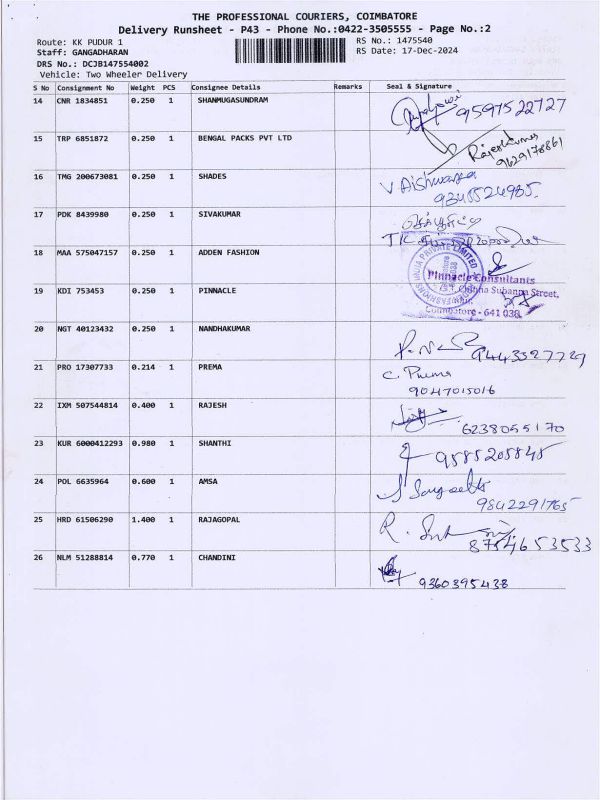 THE PROFESSIONAL COURIERS, COIMBATORE
Delivery Runsheet - P43 - Phone No.:0422-3505555 - Page No.:2
Route: KK PUDUR 1 RS No.: 1475540
Staff: GANGADHARAN RS Date: 17-Dec-2024
DRS No.: DCJB147554002
Vehicle: Two Wheeler Delivery
S No Consignment No Weight PCS Consignee Details Remarks Seal & Signature
14 CNR 1834851 0.250 1 SHANMUGASUNDRAM
9597522727
15 TRP 6851872 0.250 1 BENGAL PACKS PVT LTD
Rajeshkumar
9629178861
16 TMG 200673081 0.250 1 SHADES V Aishwarya
9345524935
17 PDK 8439980 0.250 1 SIVAKUMAR
18 MAA 575047157 0.250 1 ADDEN FASHION
PRIVATE LIMITED
Pinnacle Consultants
19 KDI 753453 0.250 1 PINNACLE
Chinna Subanna Street,
Coimbatore - 641 038.
20 NGT 40123432 0.250 1 NANDHAKUMAR
9443327729
21 PRO 17307733 0.214 1 PREMA C. Prema
9047015016
22 IXM 507544814 0.400 1 RAJESH
6238055170
23 KUR 6000412293 0.980 1 SHANTHI
9585205845
24 POL 6635964 0.600 1 AMSA
9842291765
25 HRD 61506290 1.400 1 RAJAGOPAL
8754653533
26 NLM 51288814 0.770 1 CHANDINI
9360395438